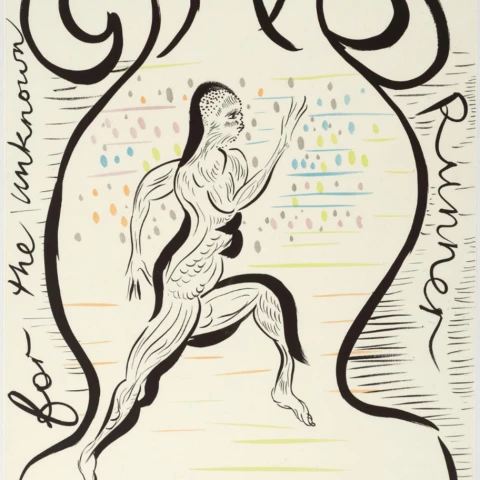 for the unknown
Runner